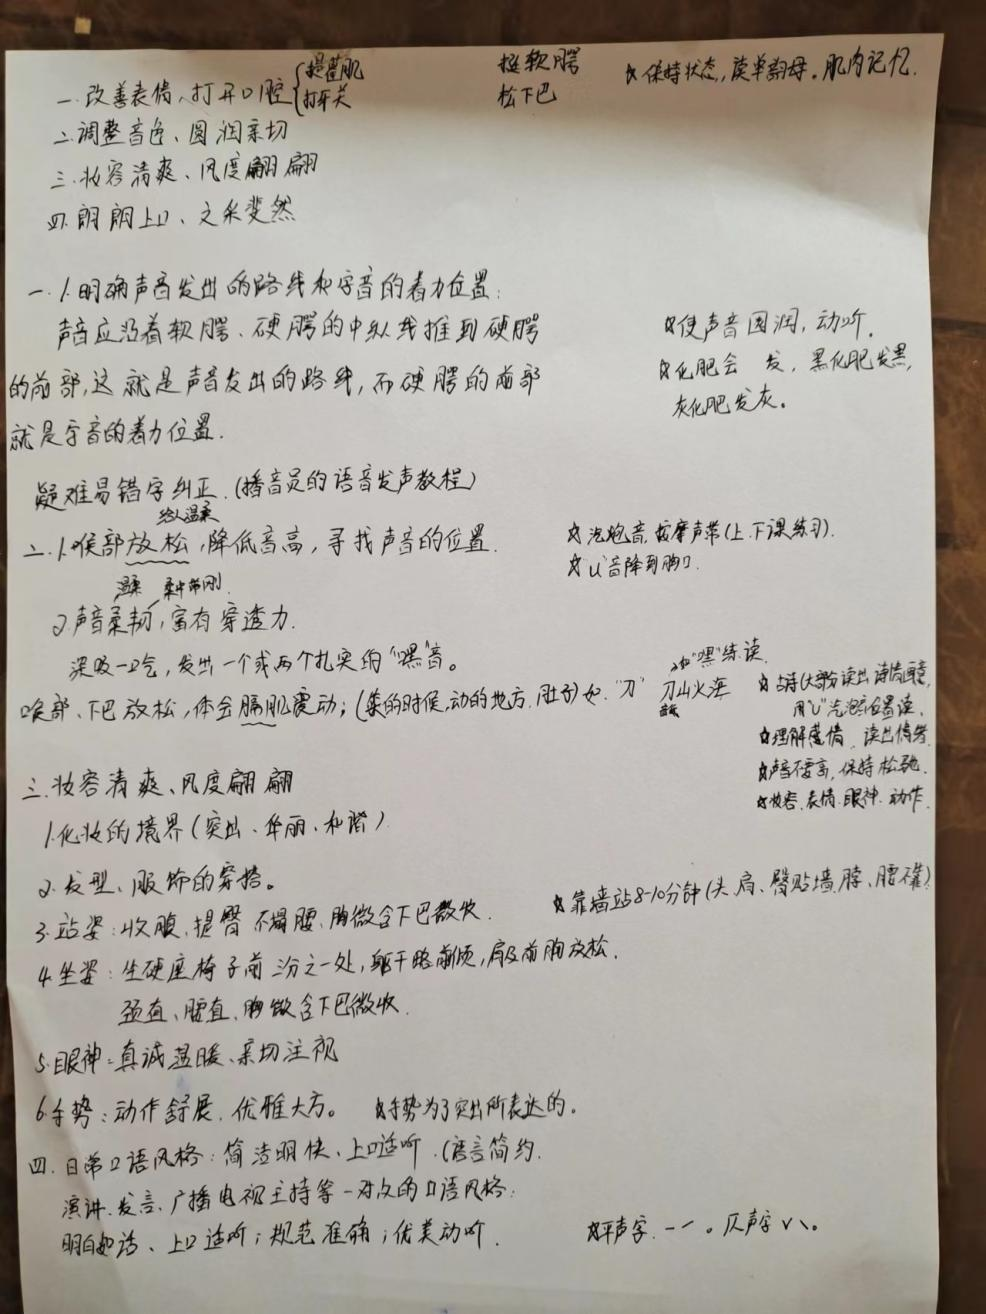 一.改善表情、打开口腔{提笑肌 挺软腭 ☆保持状态,读单韵母。肌肉记忆.
打牙关 松下巴
二.调整音色、圆润亲切
三.妆容清爽、风度翩翩
四.朗朗上口、文采斐然
一.1.明确声音发出的路线和字音的着力位置:
声音应沿着软腭、硬腭的中纵线推到硬腭 ☆使声音圆润,动听.
的前部,这就是声音发出的路线,而硬腭的前部 ☆化肥会 发,黑化肥发黑,
就是字音的着力位置. 灰化肥发灰。
疑难易错字纠正.(播音员的语音发声教程)
给人温柔
二.1.喉部放松,降低音高,寻找声音的位置. ☆泡泡音,按摩声带(上.下课练习).
温柔 柔中带刚. ☆"u"音降到胸口.
2.声音柔韧,富有穿透力.
深吸一口气,发出一个或两个扎实的"嘿"音。 加"嘿"练读.
喉部、下巴放松,体会膈肌震动;(笑的时候,动的地方.肚子)如."刀" 刀山火海 ☆古诗(大部分读出诗情画意,
用"u"泡泡位置读.
☆理解感情.读出情绪.
☆声音不要高,保持松弛.
☆妆容.表情.眼神.动作.
三.妆容清爽、风度翩翩
1.化妆的境界(突出、华丽、和谐)
2.发型、服饰的穿搭。
3.站姿:收腹,提臀 不塌腰,胸微含下巴微收. ☆靠墙站8-10分钟(头.肩、臀贴墙,脖、腰不靠)
4.坐姿:坐硬座椅子前三分之一处,躯干略前倾,肩及前胸放松.
颈直、腰直、胸微含下巴微收.
5.眼神:真诚温暖、亲切注视
6.手势:动作舒展.优雅大方。 ☆手势为了突出所表达的.
四.日常口语风格:简洁明快、上口适听.(语言简约.
演讲.发言、广播电视主持等一对众的口语风格:
明白如话、上口适听;规范准确;优美动听. ☆平声字.一ˊ。仄声字ˇˋ。